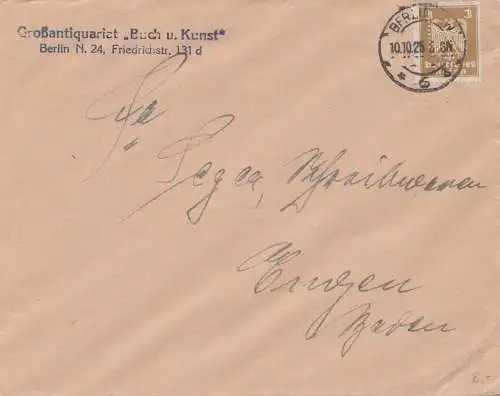 Großantiquariat „Buch u. Kunst“
Berlin N. 24, Friedrichstr. 131 d
BERLIN
10.10.25
3
Deutsches Reich
Fa
Schreibwaren
Engen
Baden